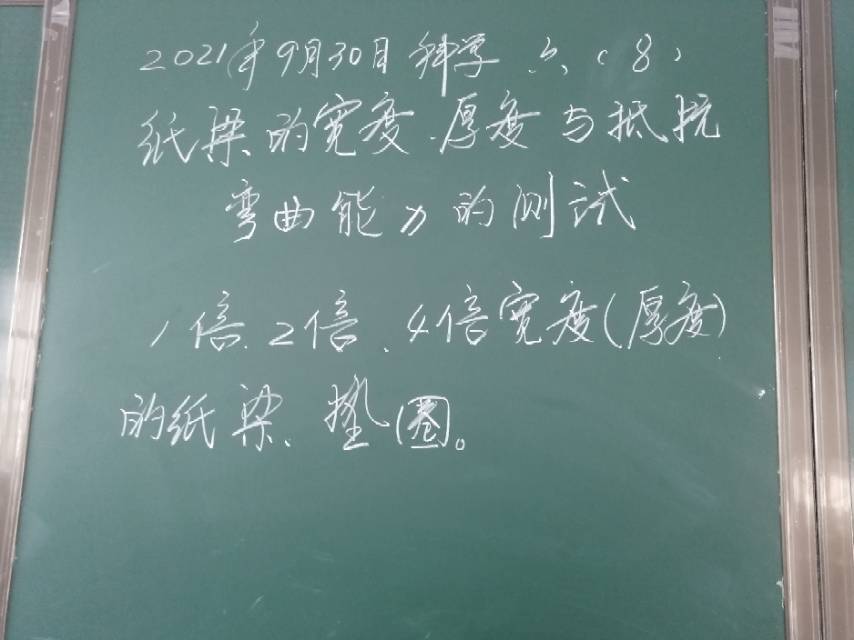 2021年9月30日 科学 六(8)
纸梁的宽度、厚度与抵抗
弯曲能力的测试
1倍、2倍、4倍宽度(厚度)
的纸梁、垫圈。